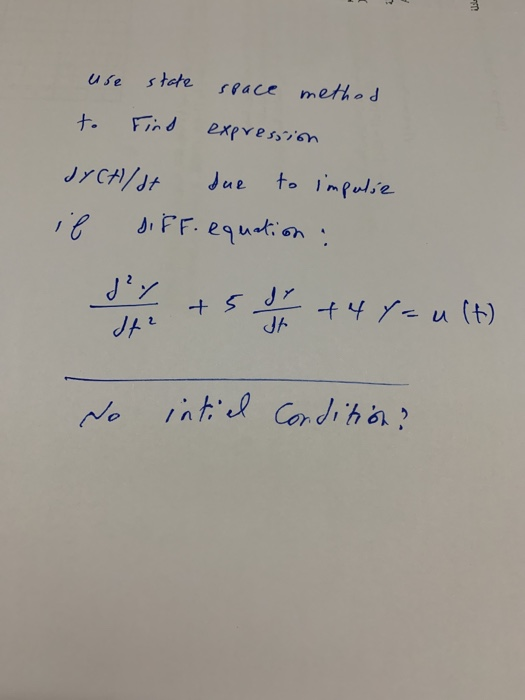 use state space method
to Find expression
dy(t)/dt due to impulse
if diFF. equation:
d²y/dt² + 5 dy/dt + 4 y = u (t)
No intiel Condition?